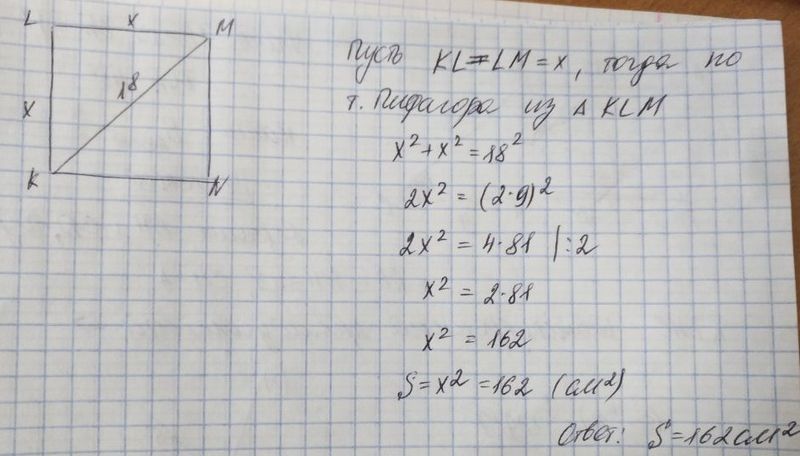 L x M
18
x
K N
Пусть KL=LM=x, тогда по
т. Пифагора из Δ KLM
x²+x²=18²
2x² = (2·9)²
2x² = 4·81 |:2
x² = 2·81
x² = 162
S=x²=162 (см²)
Ответ: S=162см²